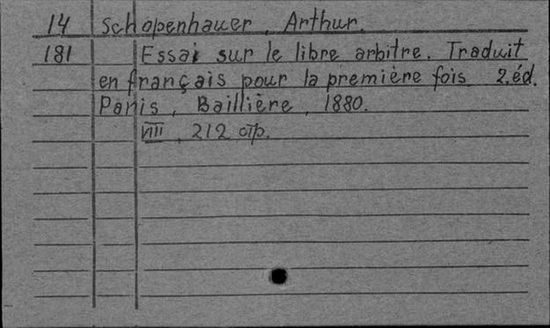 14 Schopenhauer, Arthur.
181 Essai sur le libre arbitre. Traduit
en français pour la première fois 2.éd.
Paris, Baillière, 1880.
VIII, 212 стр.